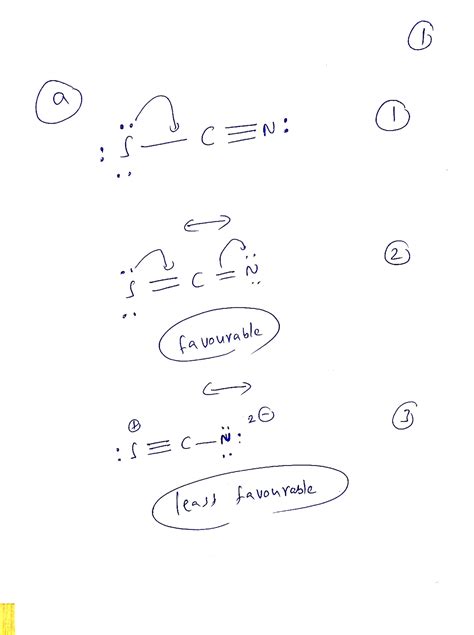 1
a
:S̈ — C ≡ N: 1
↔
S̈ = C = N̈ 2
favourable
↔
⊕ 2⊖
:S ≡ C — N̈: 3
least favourable